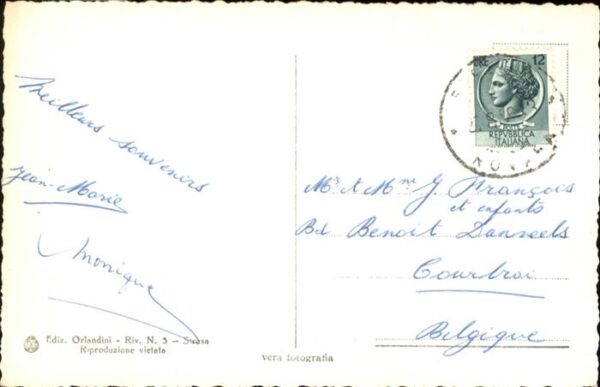 Meilleurs souvenirs
Jean-Marie
Monique
Ediz. Orlandini - Riv. N. 5 - Stresa
Riproduzione vietata
vera fotografia
LIRE 12
POSTE
REPVBBLICA
ITALIANA
Mr & Mme J. François
et enfants
Bd Benoit Danseels
Courtrai
Belgique